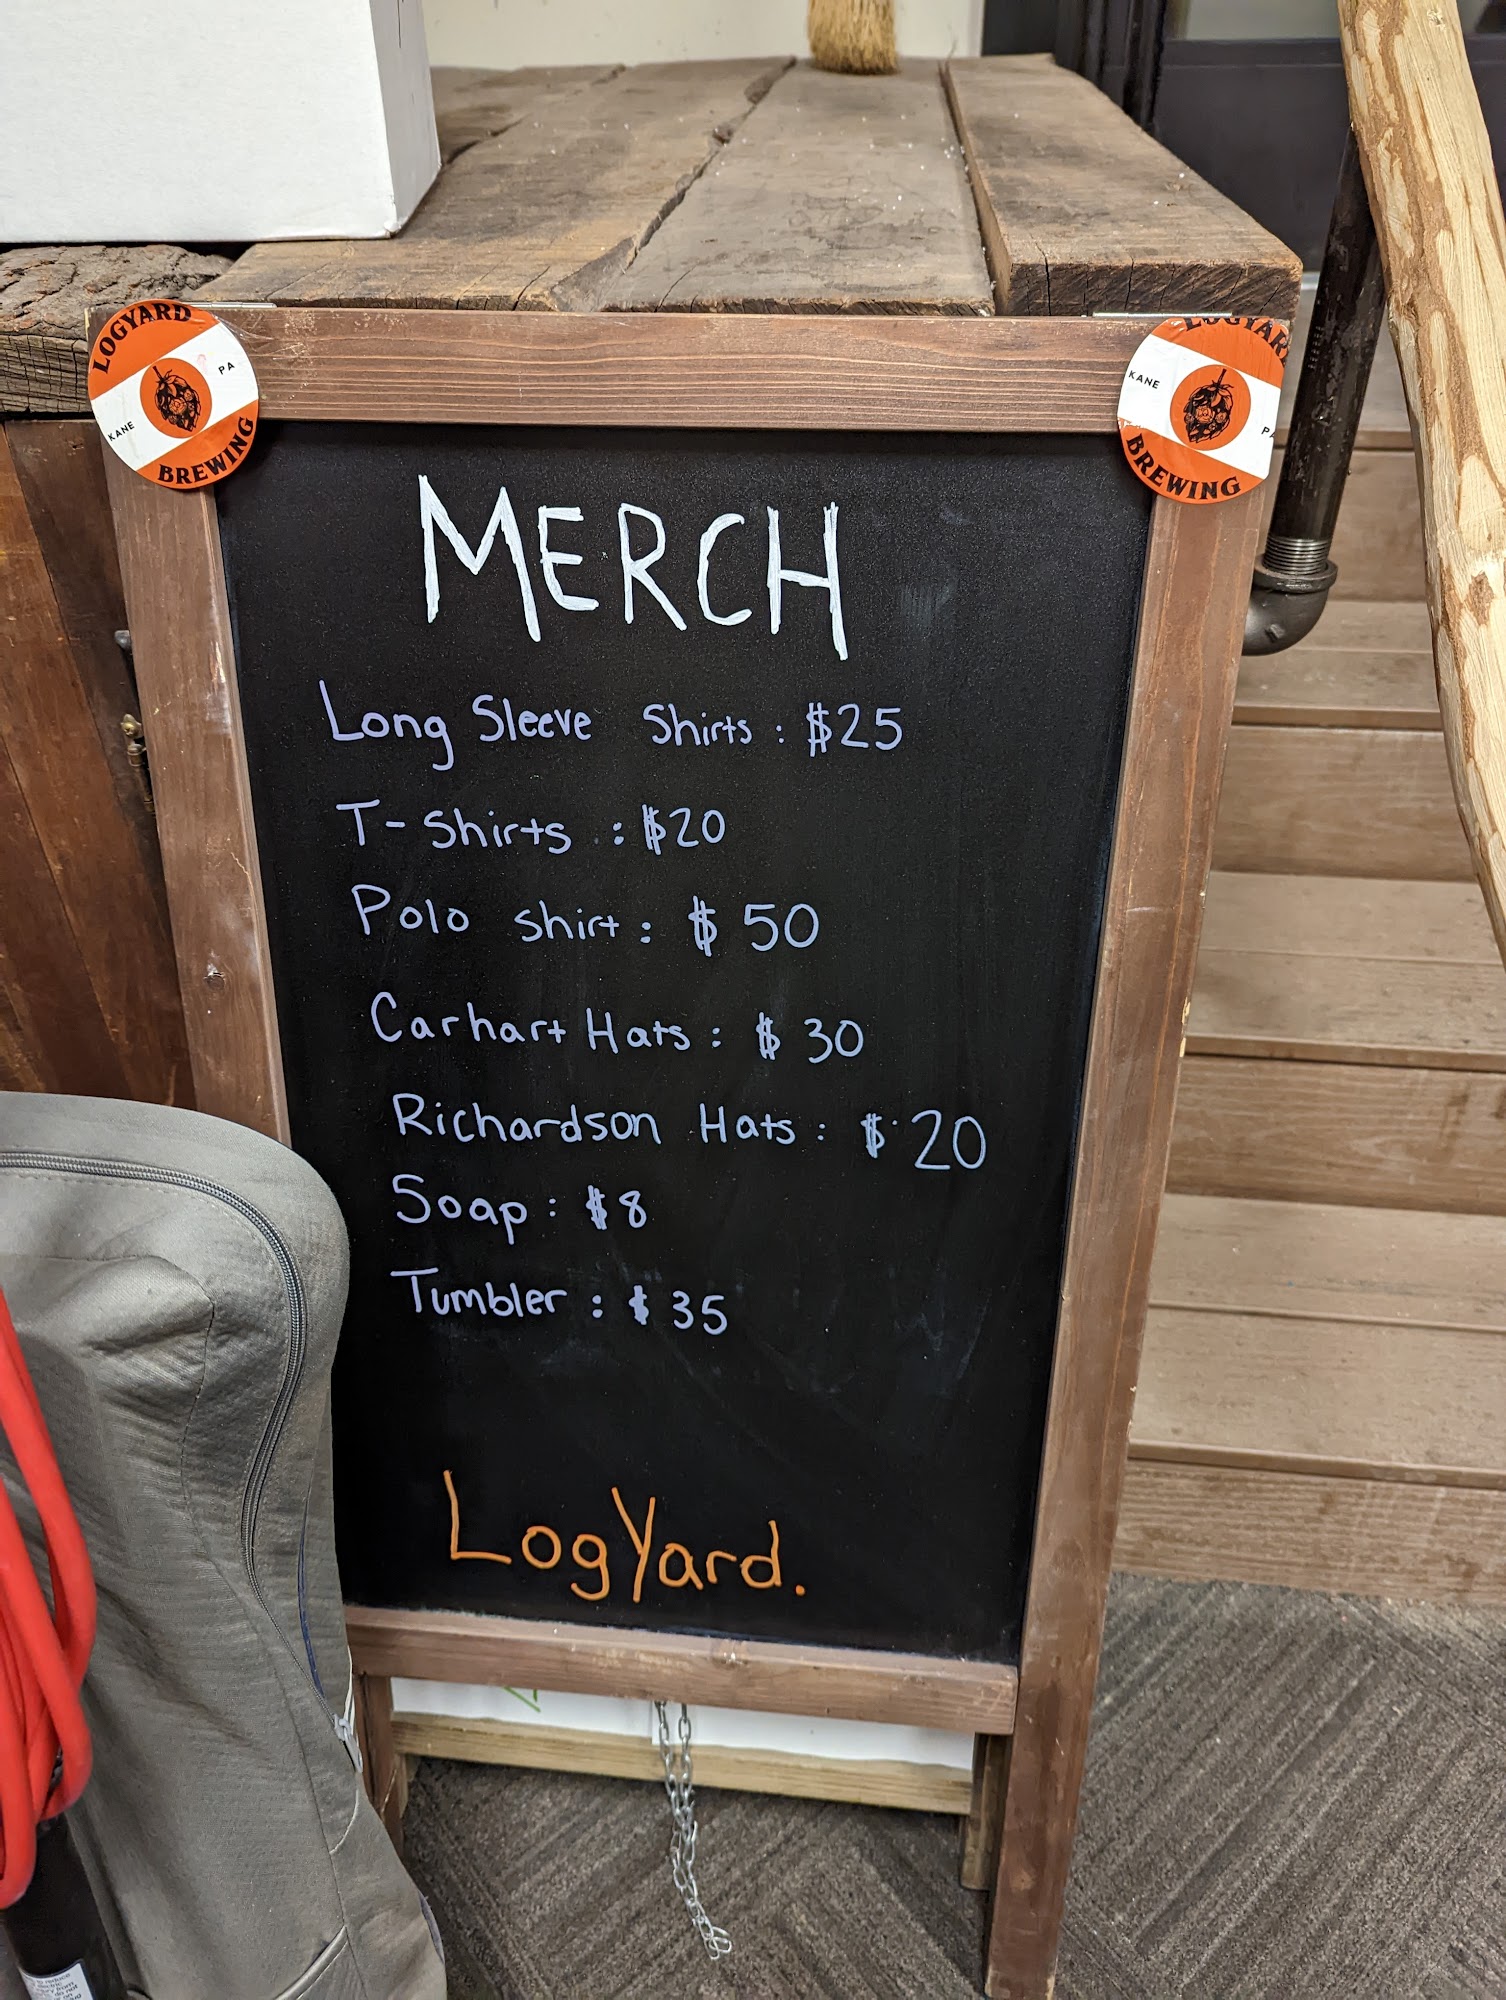 LOGYARD
KANE PA
BREWING
LOGYARD
KANE PA
BREWING
MERCH
Long Sleeve Shirts: $25
T-Shirts: $20
Polo shirt: $50
Carhart Hats: $30
Richardson Hats: $20
Soap: $8
Tumbler: $35
LogYard.